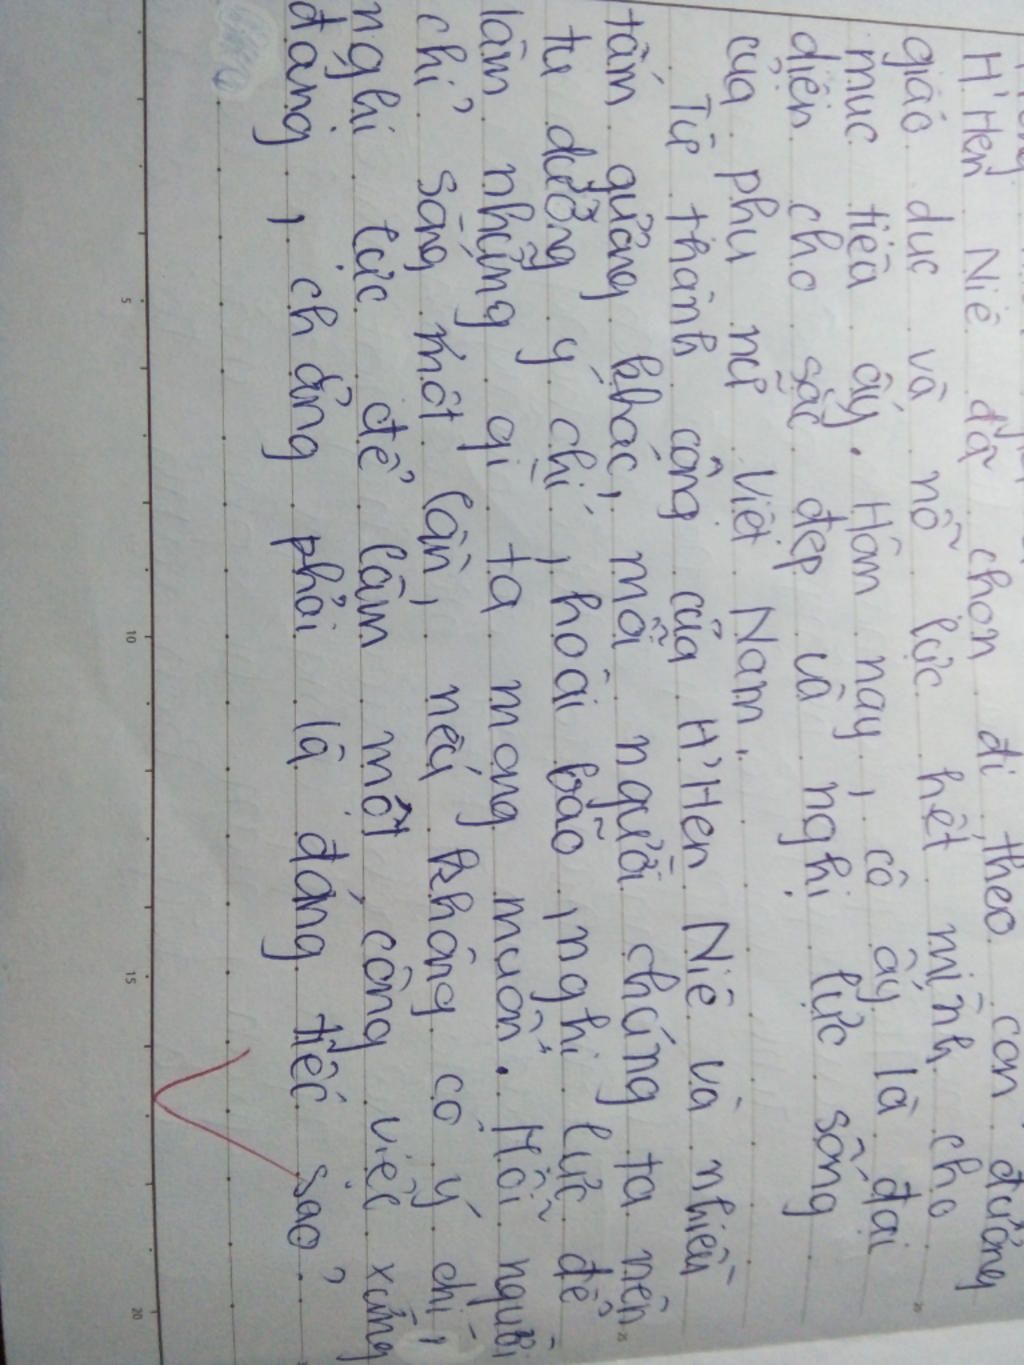 H'Hen Niê đã chọn đi theo con đường
giáo dục và nỗ lực hết mình cho
mục tiêu ấy. Hôm nay, cô ấy là đại
diện cho sắc đẹp và nghị lực sống
của phụ nữ Việt Nam.
Từ thành công của H'Hen Niê và nhiều
tấm gương khác, mỗi người chúng ta nên
tu dưỡng ý chí, hoài bão, nghị lực để
làm những gì ta mong muốn. Mỗi người
chỉ sống một lần, nếu không có ý chí,
nghị lực để làm một công việc xứng
đáng, chẳng phải là đáng tiếc sao?
5
10
15
20